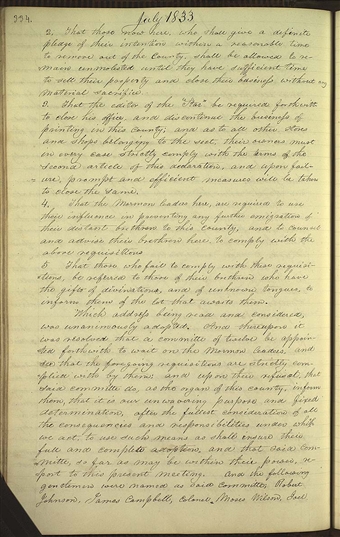 224.
July 1833
2, That those now here, who shall give a definite
pledge of their intention within a reasonable time
to remove out of the County, shall be allowed to re-
main unmolested until they have sufficient time
to sell their property and close their business, without any
material sacrifice
3. That the editor of the "Star" be required forthwith
to close his office, and discontinue the business of
printing in this County; and as to all other stores
and shops belonging to the sect, their owners must
in every case strictly comply with the terms of the
second article of this declaration, and upon fail-
ure, prompt and efficient measures will be taken
to close the same.
4, That the Mormon leaders here, are required to use
their influence in preventing any further emigration of
their distant brethren to this County, and to counsel
and advise their brethren here, to comply with the
above requisitions
5 That those who fail to comply with these requisi-
tions, be referred to those of their brethren who have
the gifts of divination, and of unknown tongues, to
inform them of the lot that awaits them.
Which address being read and considered,
was unanimously adopted. And thereupon it
was resolved that a committe of twelve be appoin-
ted forthwith to wait on the Mormon leaders, and
see that the foregoing requisitions are strictly com-
plied with by them and upon their refusal, that
said committe do, as the organ of this county, inform
them, that it is our unwavering purpose and fixed
determination, after the fullest consideration of all
the consequences and responsibilities under which
we act, to use such means as shall ensure their
full and complete adoption, and that said com-
mitte, so far as may be within their power, re-
port to this present meeting. And the following
gentlemen were named as said Committe, Robert
Johnson, James Campbell, Colonel Moses Wilson, Joel